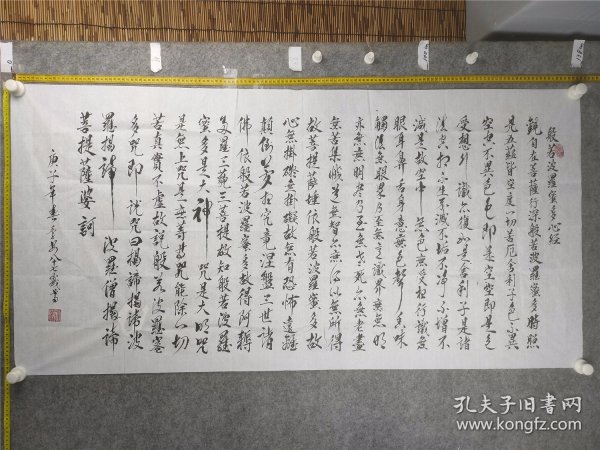 般若波羅蜜多心經
觀自在菩薩行深般若波羅蜜多時照
見五蘊皆空度一切苦厄舍利子色不異
空空不異色色即是空空即是色
受想行識亦復如是舍利子是諸
法空相不生不滅不垢不淨不增不
減是故空中無色無受想行識無
眼耳鼻舌身意無色聲香味
觸法無眼界乃至無意識界無無明
亦無無明盡乃至無老死亦無老死盡
無苦集滅道無智亦無得以無所得
故菩提薩埵依般若波羅蜜多故
心無掛礙無掛礙故無有恐怖遠離
顛倒夢想究竟涅槃三世諸
佛依般若波羅蜜多故得阿耨
多羅三藐三菩提故知般若波羅
蜜多是大神咒是大明咒
是無上咒是無等等咒能除一切
苦真實不虛故說般若波羅蜜
多咒即說咒曰揭諦揭諦波
羅揭諦波羅僧揭諦
菩提薩婆訶
庚子年
孔夫子旧书网
www.kongfz.com